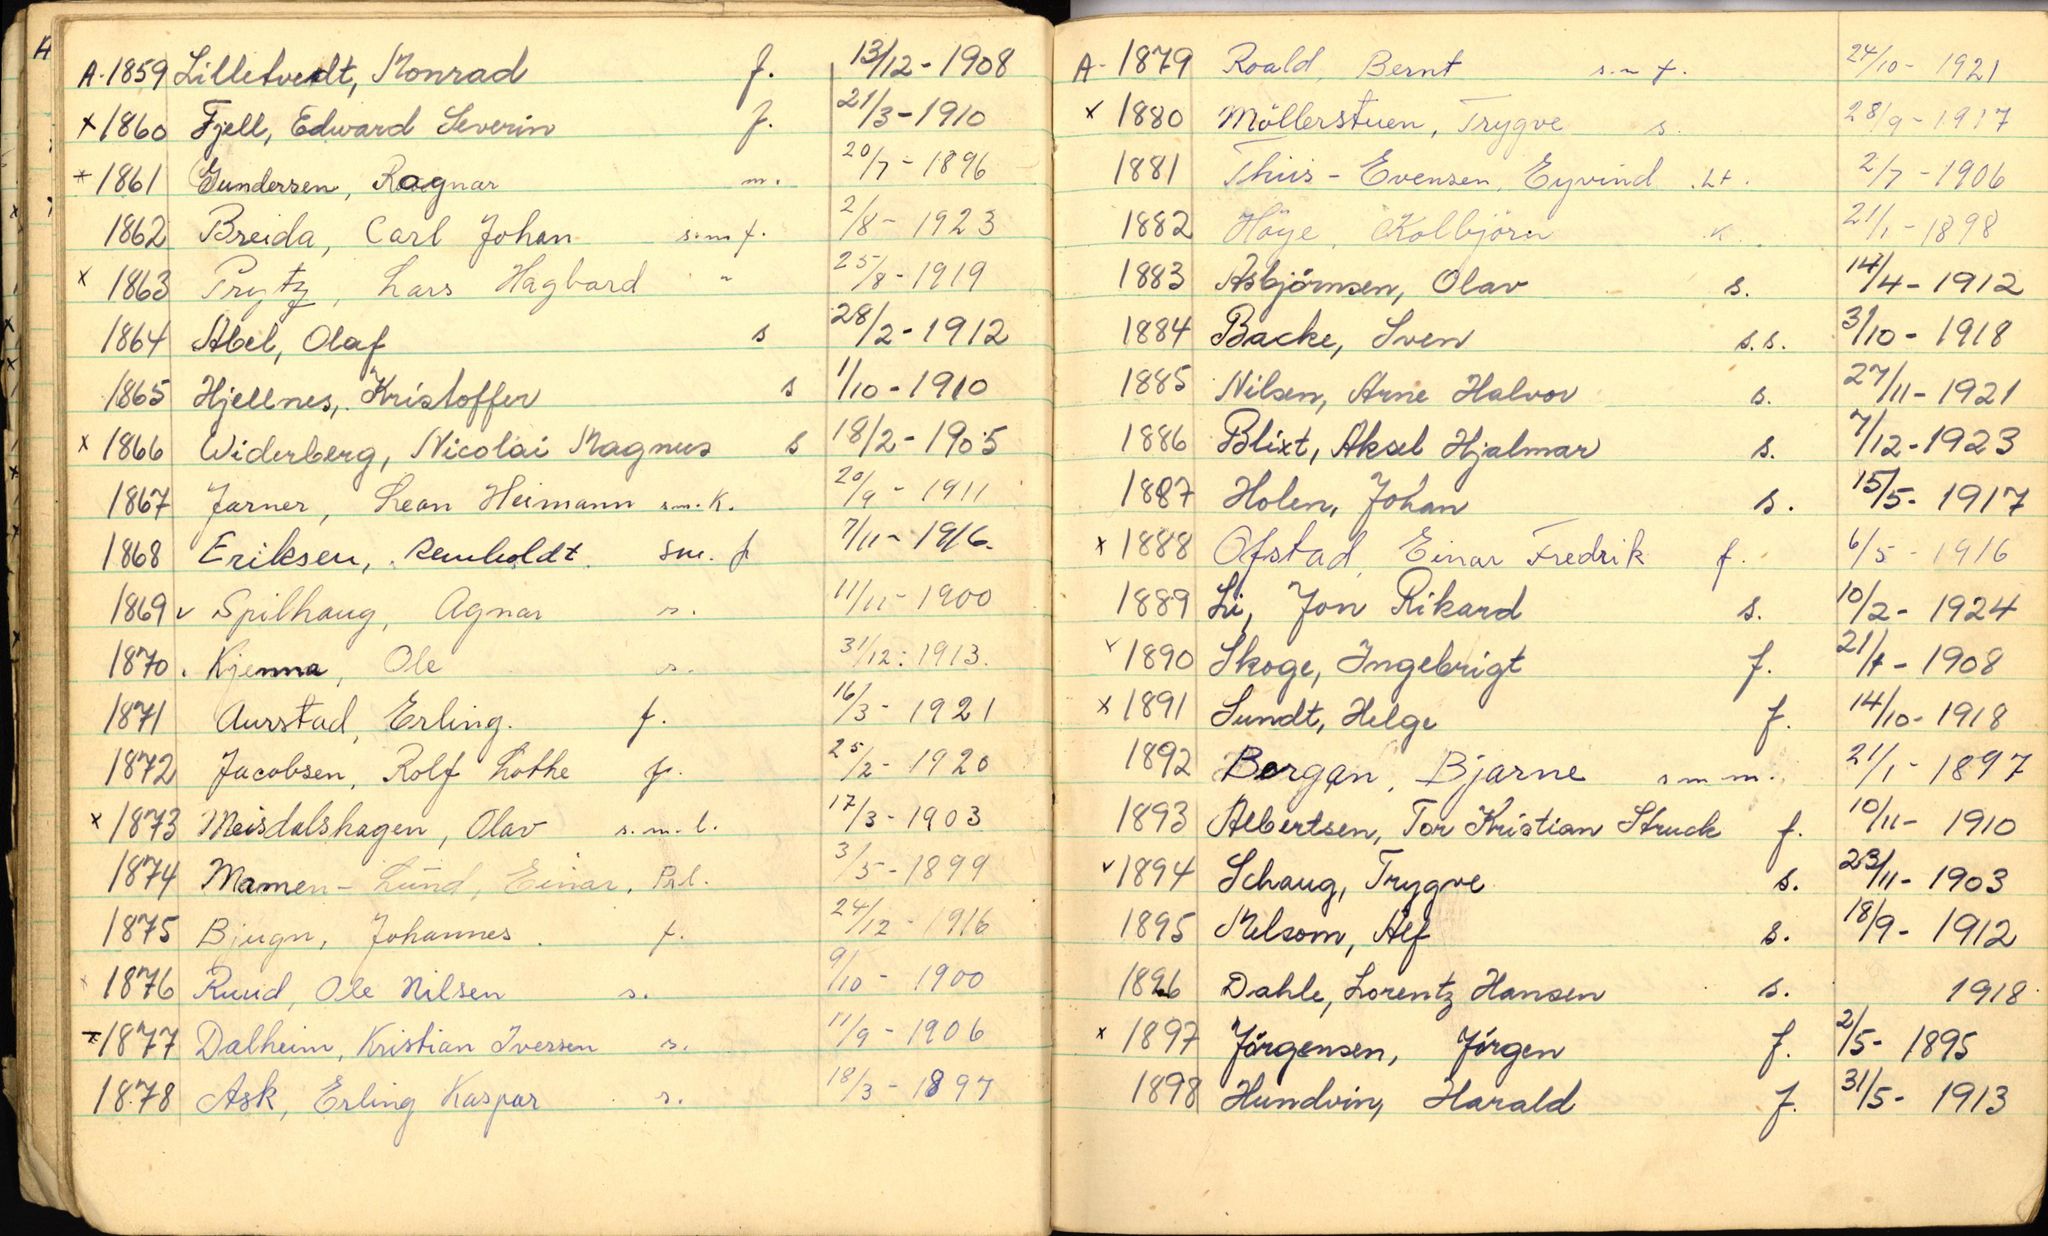 A
A-1859 Lilletvedt, Konrad f. 13/12-1908
x 1860 Fjell, Edward Severin f. 21/3-1910
x 1861 Gundersen, Ragnar m. 20/7-1896
1862 Breida, Carl Johan s.m f. 2/8-1923
x 1863 Prytz, Lars Hagbard " 25/8-1919
1864 Abel, Olaf s 28/2-1912
1865 Hjellnes, Kristoffer s 1/10-1910
x 1866 Widerberg, Nicolai Magnus s 18/2-1905
1867 Jarner, Leon Heimann s.m.K. 20/9-1911
1868 Eriksen, Reinholdt. sm. f 7/11-1916.
1869 v Spilhaug, Agnar s. 11/11-1900
1870. Kjenna, Ole s. 31/12:1913.
1871 Aurstad, Erling. f. 16/3-1921
1872 Jacobsen, Rolf Lothe f. 25/2-1920
x 1873 Meisdalshagen, Olav s.m.l. 17/3-1903
1874 Mamen-Lund, Einar. Prl. 3/5-1899
1875 Bjugn, Johannes. f. 24/12-1916
x 1876 Ruud, Ole Nilsen s. 9/10-1900
x 1877 Dalheim, Kristian Iversen s. 11/9-1906
1878 Ask, Erling Kaspar s. 18/3-1897
A-1879 Roald, Bernt s.m f. 24/10-1921
x 1880 Möllerstuen, Trygve s. 28/9-1917
1881 Thiis-Evensen, Eyvind .Lt. 2/7-1906
1882 Höye, Kolbjörn K. 21/1-1898
1883 Asbjörnsen, Olav s. 14/4-1912
1884 Backe, Sven s.s. 31/10-1918
1885 Nilsen, Arne Halvor s. 27/11-1921
1886 Blixt, Aksel Hjalmar s. 7/12-1923
1887 Holen, Johan s. 15/5-1917
x 1888 Ofstad, Einar Fredrik f. 6/5-1916
1889 Li, Jon Rikard s. 10/2-1924
v 1890 Skoge, Ingebrigt f. -1908
x 1891 Sundt, Helge f. 14/10-1918
1892 Bergan, Bjarne s m m. 21/1-1897
1893 Albertsen, Tor Kristian Struck f. 10/11-1910
v 1894 Schaug, Trygve s. 23/11-1903
1895 Melsom, Alf s. 18/9-1912
1896 Dahle, Lorentz Hansen s. 1918
x 1897 Jörgensen, Jörgen f. 2/5-1895
1898 Hundvin, Harald f. 31/5-1913